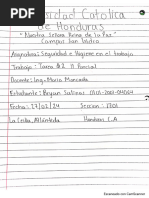 sidad Católica
de Honduras
"Nuestra Señora Reina de la Paz"
Campus San Isidro
Asignatura: Seguridad e Higiene en el trabajo
Trabajo: Tarea #2 II Parcial
Docente: Ing. Mario Moncada
Estudiante: Bryan Salinas
Fecha: 17/02/24 Seccion: 1701
La Ceiba, Atlántida Honduras C.A
Escaneado con CamScanner